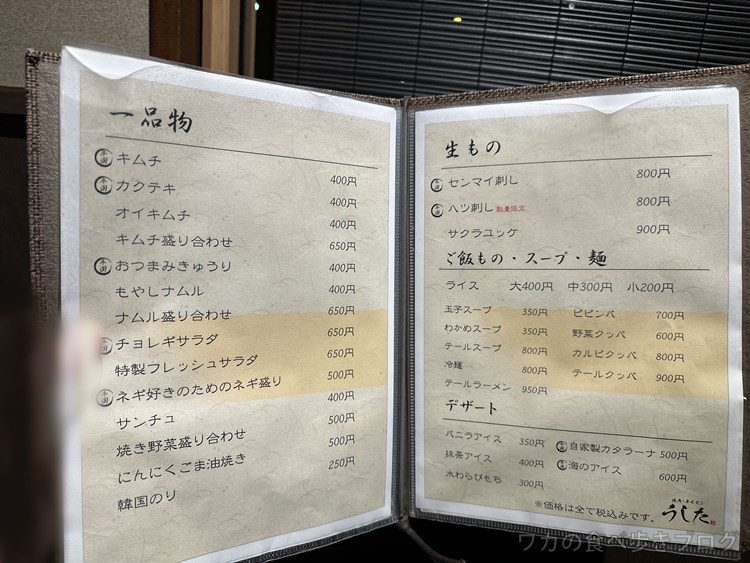 一品物
キムチ 400円
カクテキ 400円
オイキムチ 400円
キムチ盛り合わせ 650円
おつまみきゅうり 400円
もやしナムル 400円
ナムル盛り合わせ 650円
チョレギサラダ 650円
特製フレッシュサラダ 650円
ネギ好きのためのネギ盛り 500円
サンチュ 400円
焼き野菜盛り合わせ 500円
にんにくごま油焼き 500円
韓国のり 250円
生もの
センマイ刺し 800円
ハツ刺し 数量限定 800円
サクラユッケ 900円
ご飯もの・スープ・麺
ライス 大400円 中300円 小200円
玉子スープ 350円 ビビンバ 700円
わかめスープ 350円 野菜クッパ 600円
テールスープ 800円 カルビクッパ 800円
冷麺 800円 テールクッパ 900円
テールラーメン 950円
デザート
バニラアイス 350円 自家製カタラーナ 500円
抹茶アイス 400円 海のアイス 600円
水わらびもち 300円
※価格は全て税込みです。
うした
ワカの食べ歩きブログ